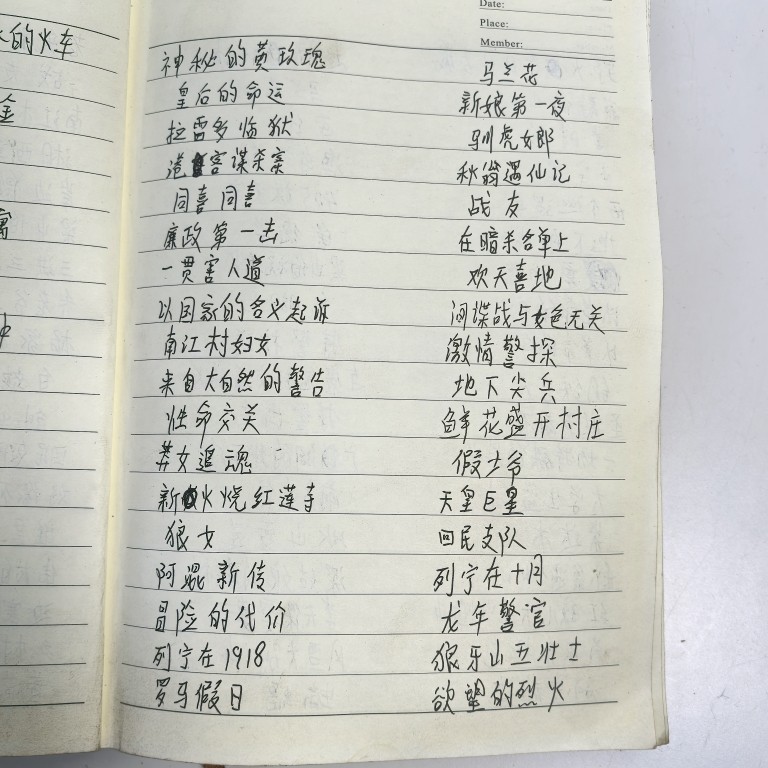 的火车
金
Date:
Place:
Member:
神秘的黄玫瑰
皇后的命运
拉雷多临狱
港客谋杀案
同喜同喜
廉政第一击
一贯害人道
以国家的名义起诉
南江村妇女
来自大自然的警告
性命交关
莽女追魂
新火烧红莲寺
狼女
阿混新传
冒险的代价
列宁在1918
罗马假日
马兰花
新娘第一夜
驯虎女郎
秋翁遇仙记
战友
在暗杀名单上
欢天喜地
间谍战与女色无关
激情警探
地下尖兵
鲜花盛开村庄
假士爷
天皇巨星
回民支队
列宁在十月
龙年警官
狼牙山五壮士
欲望的烈火